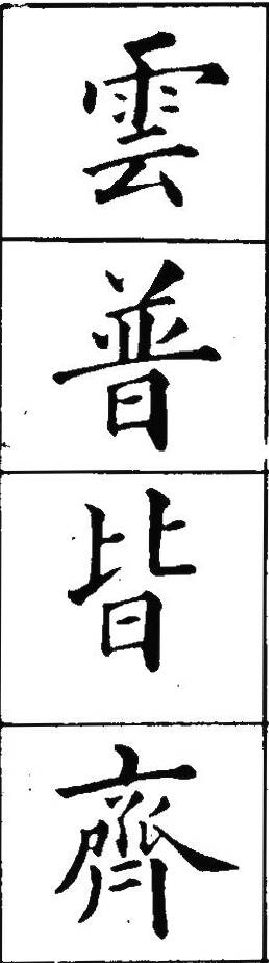 雲普皆齊